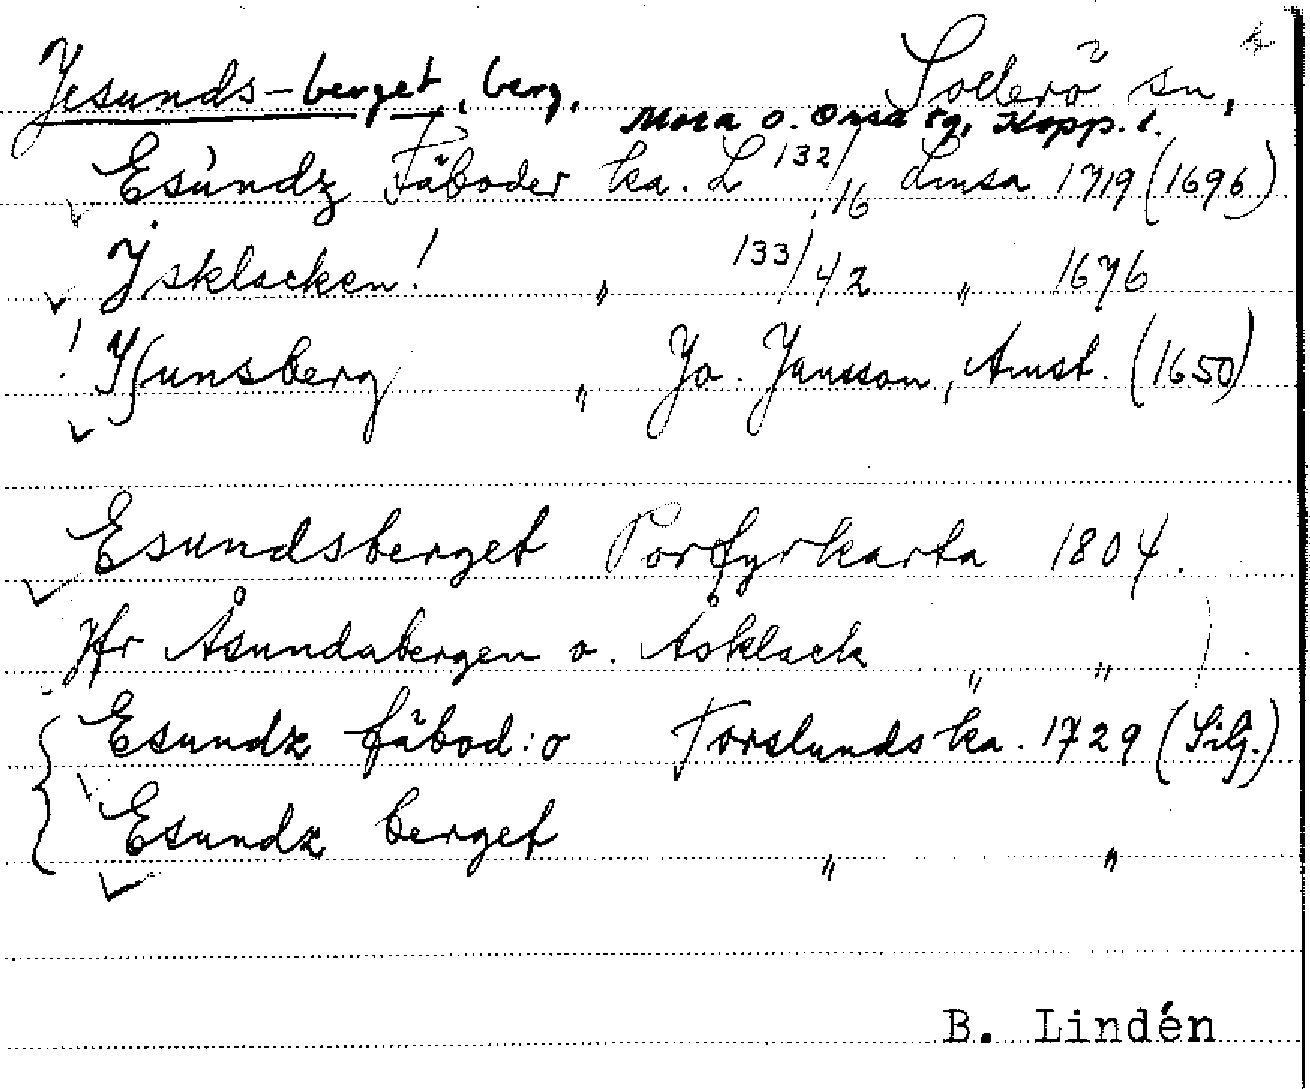 Jesunds-berget, berg, Sollerö sn,
Mora o. Orsa tg, Kopp. l.
Esundz Fäboder ka. L 132/16 Lmsa 1719 (1696)
Jsklacken! " 133/42 " 1676
! Jſunsberg " Jo. Jansson, Amst. (1650)
Esundsberget Porfyrkarta 1804.
Jfr Åsundabergen o. Åsklack " " )
Esundz fäbod:o Forslunds ka. 1729 (Silj.)
Esundz berget " "
B. Lindén